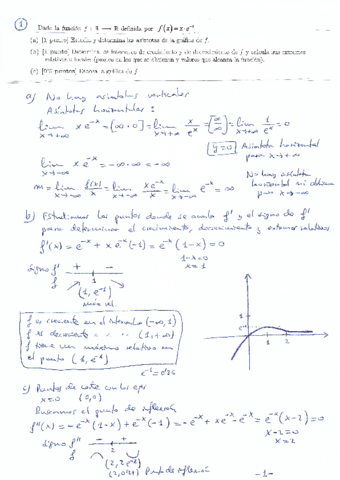 1 Dada la función f : ℝ ⟶ ℝ definida por f(x) = x·e⁻ˣ
(a) [1 punto] Estudia y determina las asíntotas de la gráfica de f.
(b) [1 punto] Determina los intervalos de crecimiento y de decrecimiento de f y calcula sus extremos
relativos o locales (puntos en los que se obtienen y valores que alcanza la función).
(c) [0'5 puntos] Esboza la gráfica de f.
a) No hay asíntotas verticales
Asíntotas horizontales:
lim x→+∞ x e⁻ˣ = [∞·0] = lim x→+∞ x/eˣ = [∞/∞] = lim x→+∞ 1/eˣ = 0
y=0 Asíntota horizontal
para x→+∞
lim x→-∞ x e⁻ˣ = -∞·∞ = -∞
No hay asíntota
horizontal ni oblicua
para x→-∞
m = lim x→-∞ f(x)/x = lim x→-∞ x e⁻ˣ/x = lim x→-∞ e⁻ˣ = ∞
b) Estudiamos los puntos donde se anula f' y el signo de f'
para determinar el crecimiento, decrecimiento y extremos relativos
f'(x) = e⁻ˣ + x e⁻ˣ(-1) = e⁻ˣ(1-x) = 0
1-x=0
x=1
signo f' + -
f 1
(1, e⁻¹)
máx rel.
f es creciente en el intervalo (-∞, 1)
f es decreciente " " " (1, +∞)
f tiene un máximo relativo en
el punto (1, e⁻¹)
1
e⁻¹
1 2
c) Puntos de corte con los ejes
x=0 (0,0)
Buscamos el punto de inflexión
f''(x) = -e⁻ˣ(1-x) + e⁻ˣ(-1) = -e⁻ˣ + xe⁻ˣ - e⁻ˣ = e⁻ˣ(x-2) = 0
x-2=0
x=2
signo f'' - +
f 2
(2, 2e⁻²)
Punto de inflexión
-1-